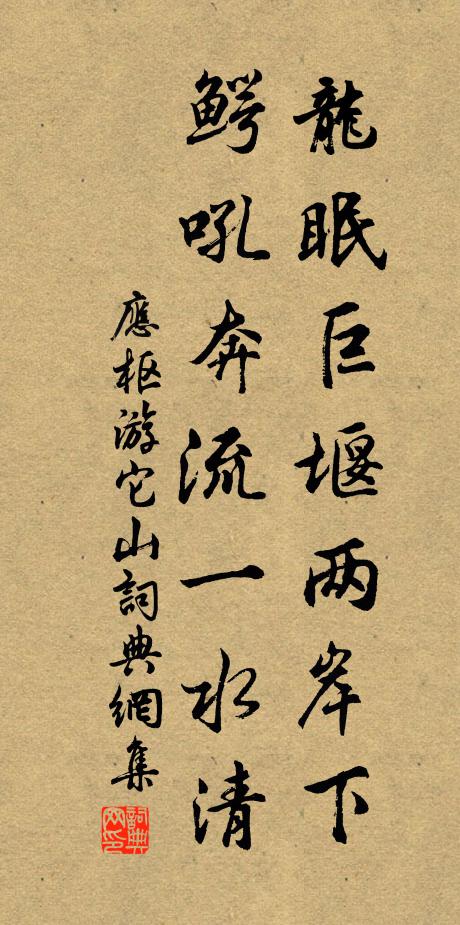 龍眠巨堰两岸下
鳄吼奔流一水清
應枢游它山詞典網集
詞典
网印